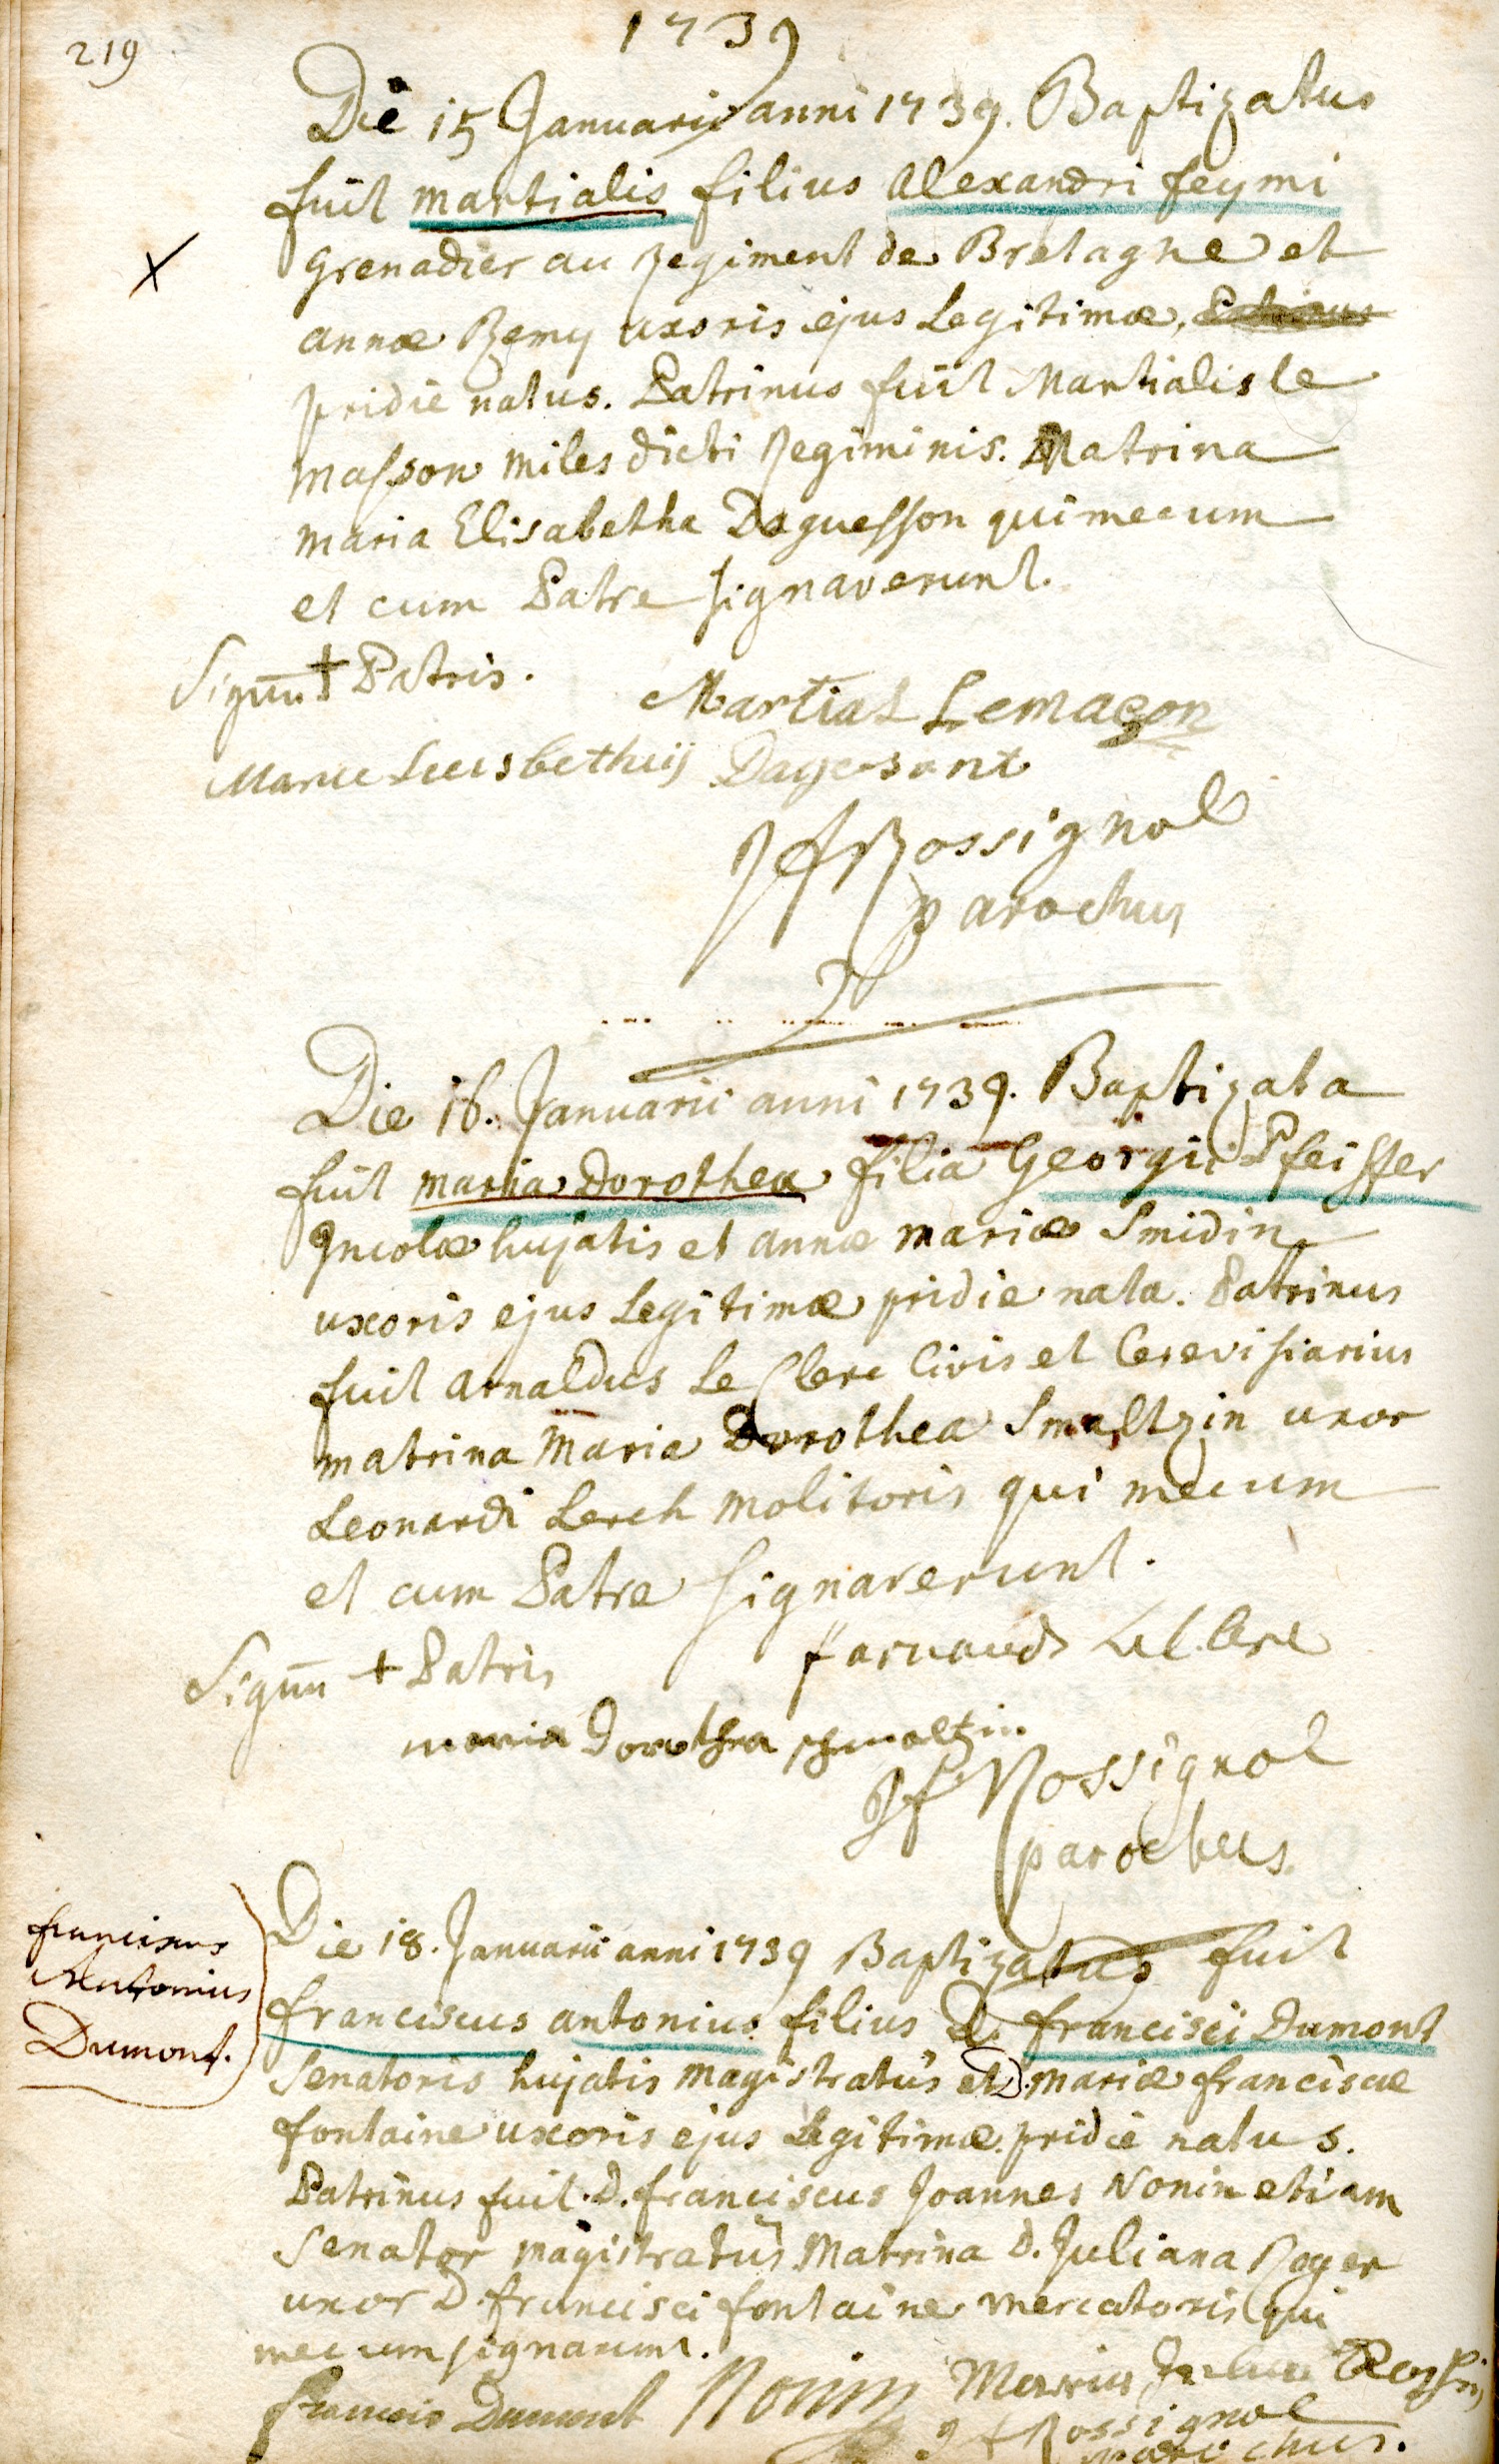 219
1739
Die 15 Januarii anni 1739. Baptizatus
fuit Martialis filius Alexandri feymi
Grenadier au Regiment de Bretagne et
annæ Remy uxoris ejus Legitimæ,
pridie natus. Patrinus fuit Martialis le
Masson miles dicti Regiminis. Matrina
maria Elisabetha Daguesson qui mecum
et cum Patre signaverunt.
Signu + Patris.
Martial Lemaçon
Dagesont
JF Rossignol
parochus
Die 16. Januarii anni 1739. Baptizata
fuit maria Dorothea filia Georgii Pfeiffer
Incolæ hujatis et annæ mariæ Smidin
uxoris ejus Legitimæ pridie nata. Patrinus
fuit Arnaldus Le Clerc Civis et Cerevisiarius
matrina Maria Dorothea Smaltzin uxor
Leonardi Lerch molitoris qui mecum
et cum Patre signaverunt.
Signu + Patris
maria Dorothea schmaltzin
JF Rossignol
parochus
franciscus
Antonius
Dumont.
Die 18. Januarii anni 1739 Baptizatus fuit
franciscus antonius filius D. francisci Dumont
Senatoris hujatis magistratus et D. mariæ franciscæ
fontaine uxoris ejus Legitimæ. pridie natus.
Patrinus fuit D. franciscus Joannes Nonin etiam
Senator magistratus Matrina D. Juliana Roger
uxor D. francisci fontaine mercatoris qui
mecum signarunt.
francois Dumont Nonin Maria
JF Rossignol
parochus.